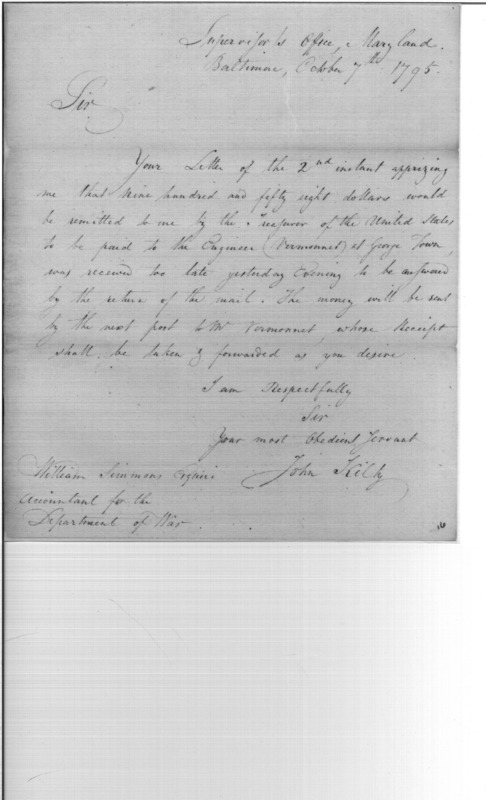 Supervisor's Office, Maryland.
Baltimore, October 7th 1795.
Sir
Your Letter of the 2nd instant apprizing
me that nine hundred and fifty eight dollars would
be remitted to me by the Treasurer of the United States
to be paid to the Engineer (Vermonnet) at George Town
was received too late yesterday Evening to be answered
by the return of the mail. The money will be sent
by the next post to Mr Vermonnet, whose Receipt
shall be taken & forwarded as you desire.
I am Respectfully
Sir
Your most Obedient Servant
John Kilty
William Simmons Esquire
Accountant for the
Department of War.